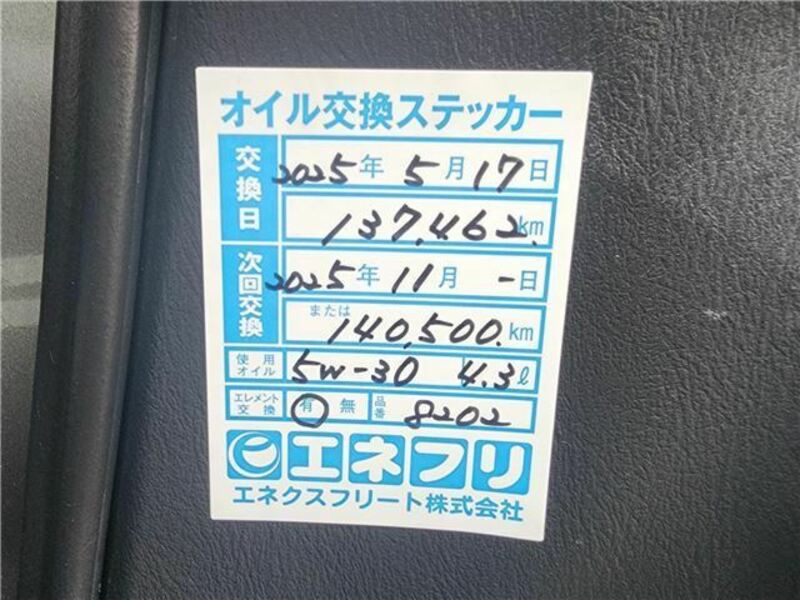 オイル交換ステッカー
交換日 2025年 5月 17日
137,462.km
次回交換 2025年 11月 -日
または 140,500.km
使用オイル 5W-30 4.3ℓ
エレメント交換 有 無 品番 8202
エネフリ
エネクスフリート株式会社